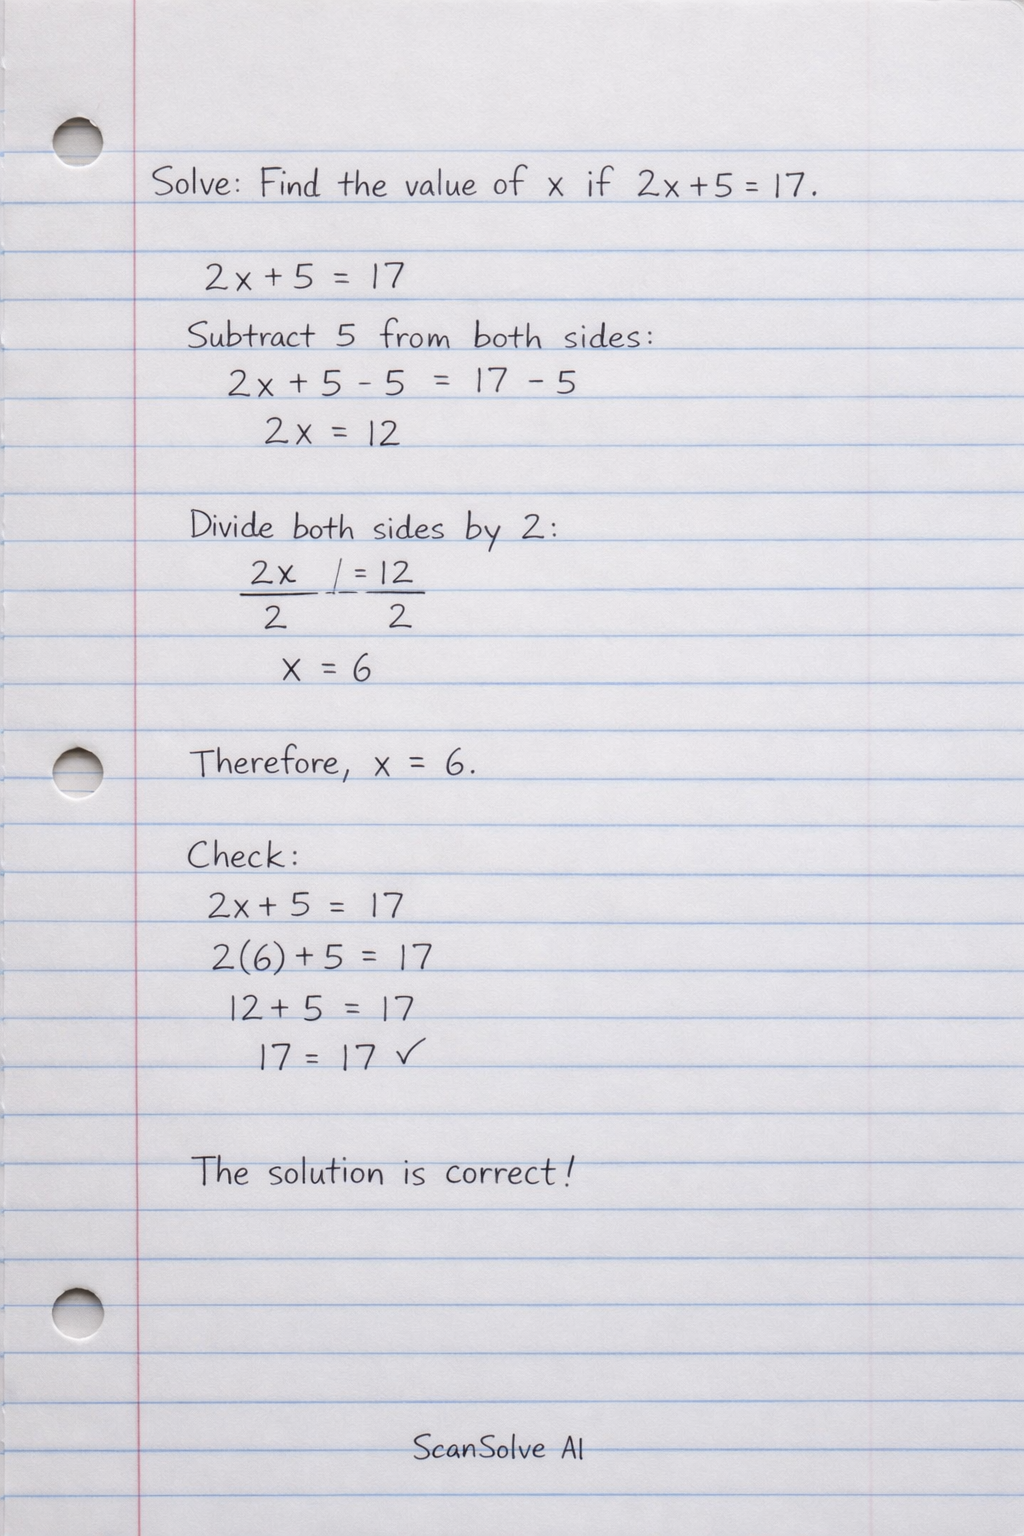 Solve: Find the value of x if 2x+5 = 17.
2x + 5 = 17
Subtract 5 from both sides:
2x + 5 - 5 = 17 - 5
2x = 12
Divide both sides by 2:
2x /= 12
2 2
x = 6
Therefore, x = 6.
Check:
2x + 5 = 17
2(6) + 5 = 17
12 + 5 = 17
17 = 17 ✓
The solution is correct!
ScanSolve AI